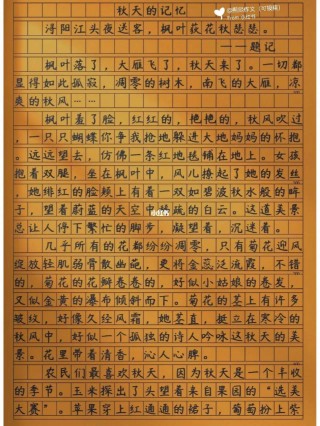 秋天的记忆
浔阳江头夜送客，枫叶荻花秋瑟瑟。
——题记
枫叶落了，大雁飞了，秋天来了。一切都
显得如此孤寂，凋零的树木，南飞的大雁，凉
爽的秋风……
枫叶羞了脸，红红的，艳艳的，秋风吹过
，一只只蝴蝶你争我抢地躲进大地妈妈的怀抱
。远远望去，仿佛一条红地毯铺在地上。女孩
抱着双腿，坐在枫叶中，风儿撩起了她的发丝
，她绯红的脸颊上有着一双如碧波秋水般的眸
子，望着蔚蓝的天空中的白云。这道美景
总让人停下繁忙的脚步，凝望着，沉迷着。
几乎所有的花都纷纷凋零，只有菊花迎风
绽放轻肌弱骨散幽葩，更将金蕊泛流霞，不错
的，菊花的花瓣卷卷的，好似小姑娘的卷发，
又似金黄的瀑布倾斜而下。菊花的茎上有许多
皱纹，好像久经风霜，她茎直，挺立在寒冷的
秋风中，好似一个孤独的诗人吟咏这秋天的美
景。花里带着清香，沁人心脾。
农民们最喜欢秋天，因为秋天是一个丰收
的季节。玉米探出了头望着来自果园的“选美
大赛”。苹果穿上红通通的裙子，葡萄扮上紫